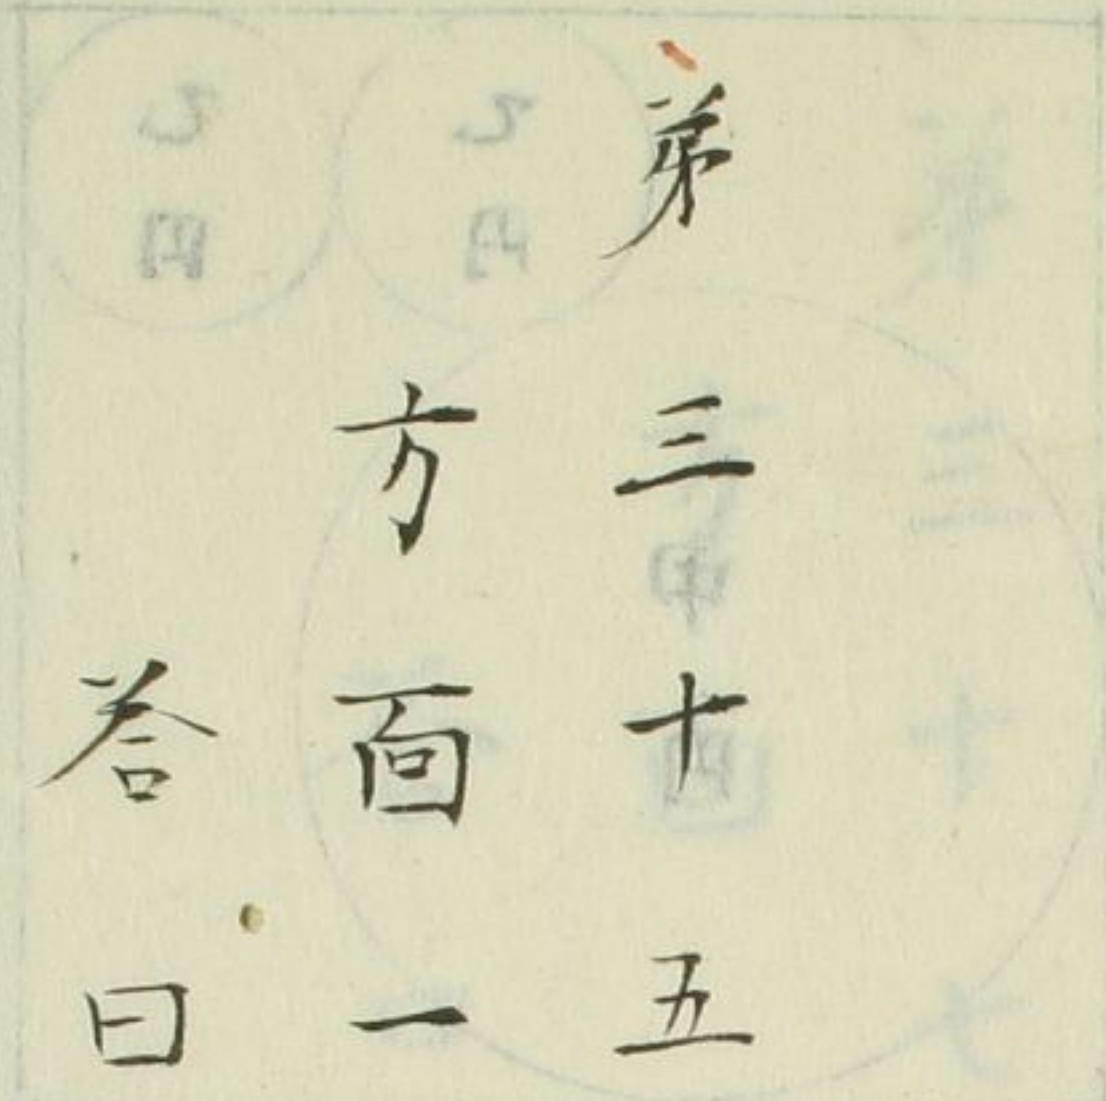 弟三十五
方面一
荅曰